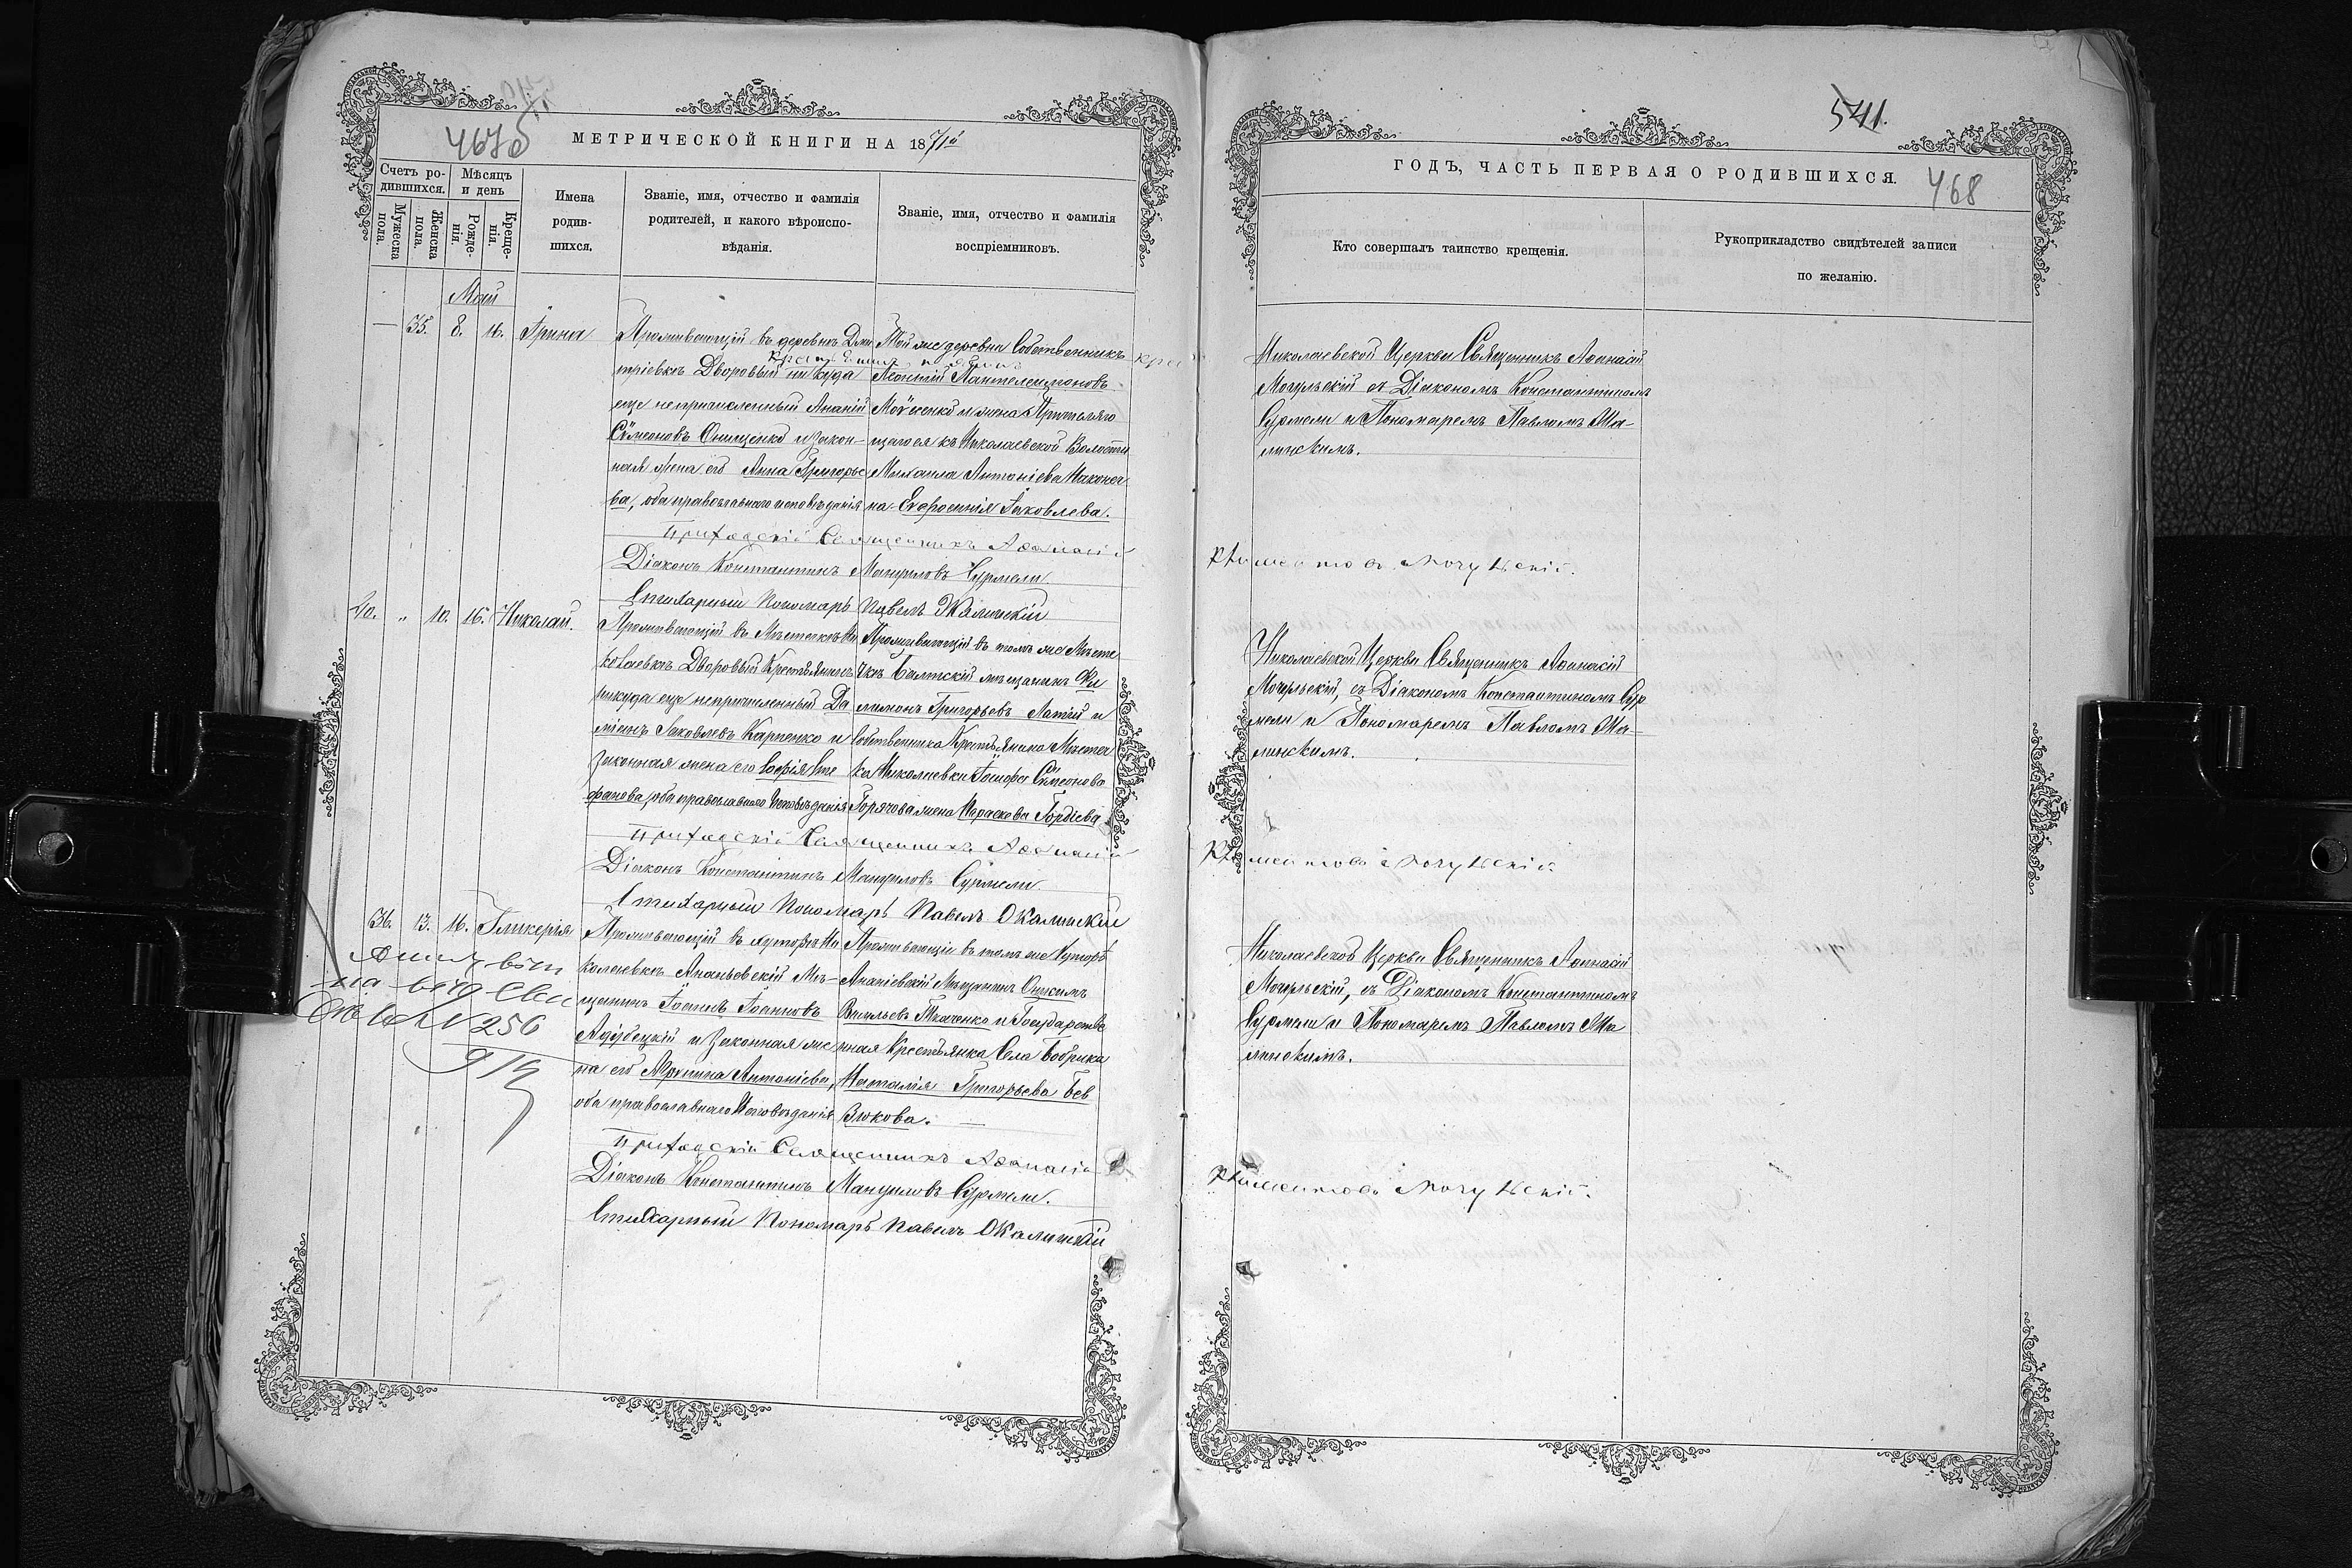 467 об
МЕТРИЧЕСКОЙ КНИГИ НА 1871й
Счетъ родившихся.
Мѣсяцъ и день
Мужеска пола.
Женска пола.
Рожденія.
Крещенія.
Имена
родив-
шихся.
Званіе, имя, отчество и фамилія
родителей, и какого вѣроиспо-
вѣданія.
Званіе, имя, отчество и фамилія
воспріемниковъ.
Май
— 35. 8. 16. Ирина
Проживающій въ деревнѣ Дми
тріевкѣ Дворовый ни куда
еще непричисленный Ананій
Сѵмеоновъ Онищенко и закон-
ная жена его Анна Григорье
ва, оба православнаго исповѣданія
Той же деревни Собственникъ
Леонтій Пантелеимоновъ
Моѵсенко и жена
щагося къ Николаевской Волости
Михаила Антоніева
на Евфросинія Іаковлева.
Приходскій Священникъ Аѳанасій
Діаконъ Константинъ Мануиловъ Сурмели
Стихарный Пономарь Павелъ
40. „ 10. 16. Николай.
Проживающій въ Мѣстечкѣ Ни
колаевкѣ Дворовый Крестьянинъ
никуда еще непричисленный Да
міанъ Іаковлевъ Карпенко и
Законная жена его Софія Сте
фанова, оба православнаго Исповѣданія
Проживающій въ томъ же Мѣсте
чкѣ Балтскій мѣщанинъ Фи
лимонъ Григорьевъ и
Собственника Крестьянина Мѣстеч
ка Николаевки Іосифа Сѵмеонова
жена Параскева Гордіева
Приходскій Священникъ Аѳанасій
Діаконъ Константинъ Мануиловъ Сурмели
Стихарный Пономарь Павелъ
36. 13. 16. Гликерія
Проживающій въ хуторѣ Ни
колаевкѣ Ананьевскій Мѣ-
щанинъ Іоаннъ Іоанновъ
и Законная же
на его Антоніева,
оба православнаго Исповѣданія
Проживающіе въ томъ же Хуторѣ
Ананіевскій Мѣщанинъ Онисимъ
Васильевъ Ткаченко и Государстве
нная Крестьянка Села Бобрика
Наталія Григорьева Бев
зюкова. —
№ 256
Приходскій Священникъ Аѳанасій
Діаконъ Константинъ Мануиловъ Сурмели.
Стихарный Пономарь Павелъ
541.
ГОДЪ, ЧАСТЬ ПЕРВАЯ О РОДИВШИХСЯ.
468
Кто совершалъ таинство крещенія.
Рукоприкладство свидѣтелей записи
по желанію.
Николаевской Церкви Священникъ Аѳанасій
Могульскій съ Діакономъ Константиномъ
Сурмели и Пономаремъ Павломъ Ка-
линскимъ.
Климентовъ Могульскій.
Николаевской Церкви Священникъ Аѳанасій
Могульскій, съ Діакономъ Константиномъ Сур
мели и Пономаремъ Павломъ Ка-
линскимъ.
Климентовъ Могульскій.
Николаевской Церкви Священникъ Аѳанасій
Могульскій, съ Діакономъ Константиномъ
Сурмели и Пономаремъ Павломъ Ка
линскимъ.
Климентовъ Могульскій.